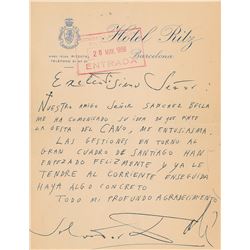 Hotel Ritz
Barcelona
28 NOV. 1958
ENTRADA
Excelentísimo Señor:
NUESTRO AMIGO SEÑOR SANCHEZ BELLA
ME HA COMUNICADO SU IDEA DE QUE PINTE
LA GESTA DEL CANO, ME ENTUSIASMA.
LAS GESTIONES EN TORNO AL
GRAN CUADRO DE SANTIAGO HAN
EMPEZADO FELIZMENTE Y YA LE
TENDRE AL CORRIENTE ENSEGUIDA
HAYA ALGO CONCRETO
TODO MI PROFUNDO AGRADECIMIENTO